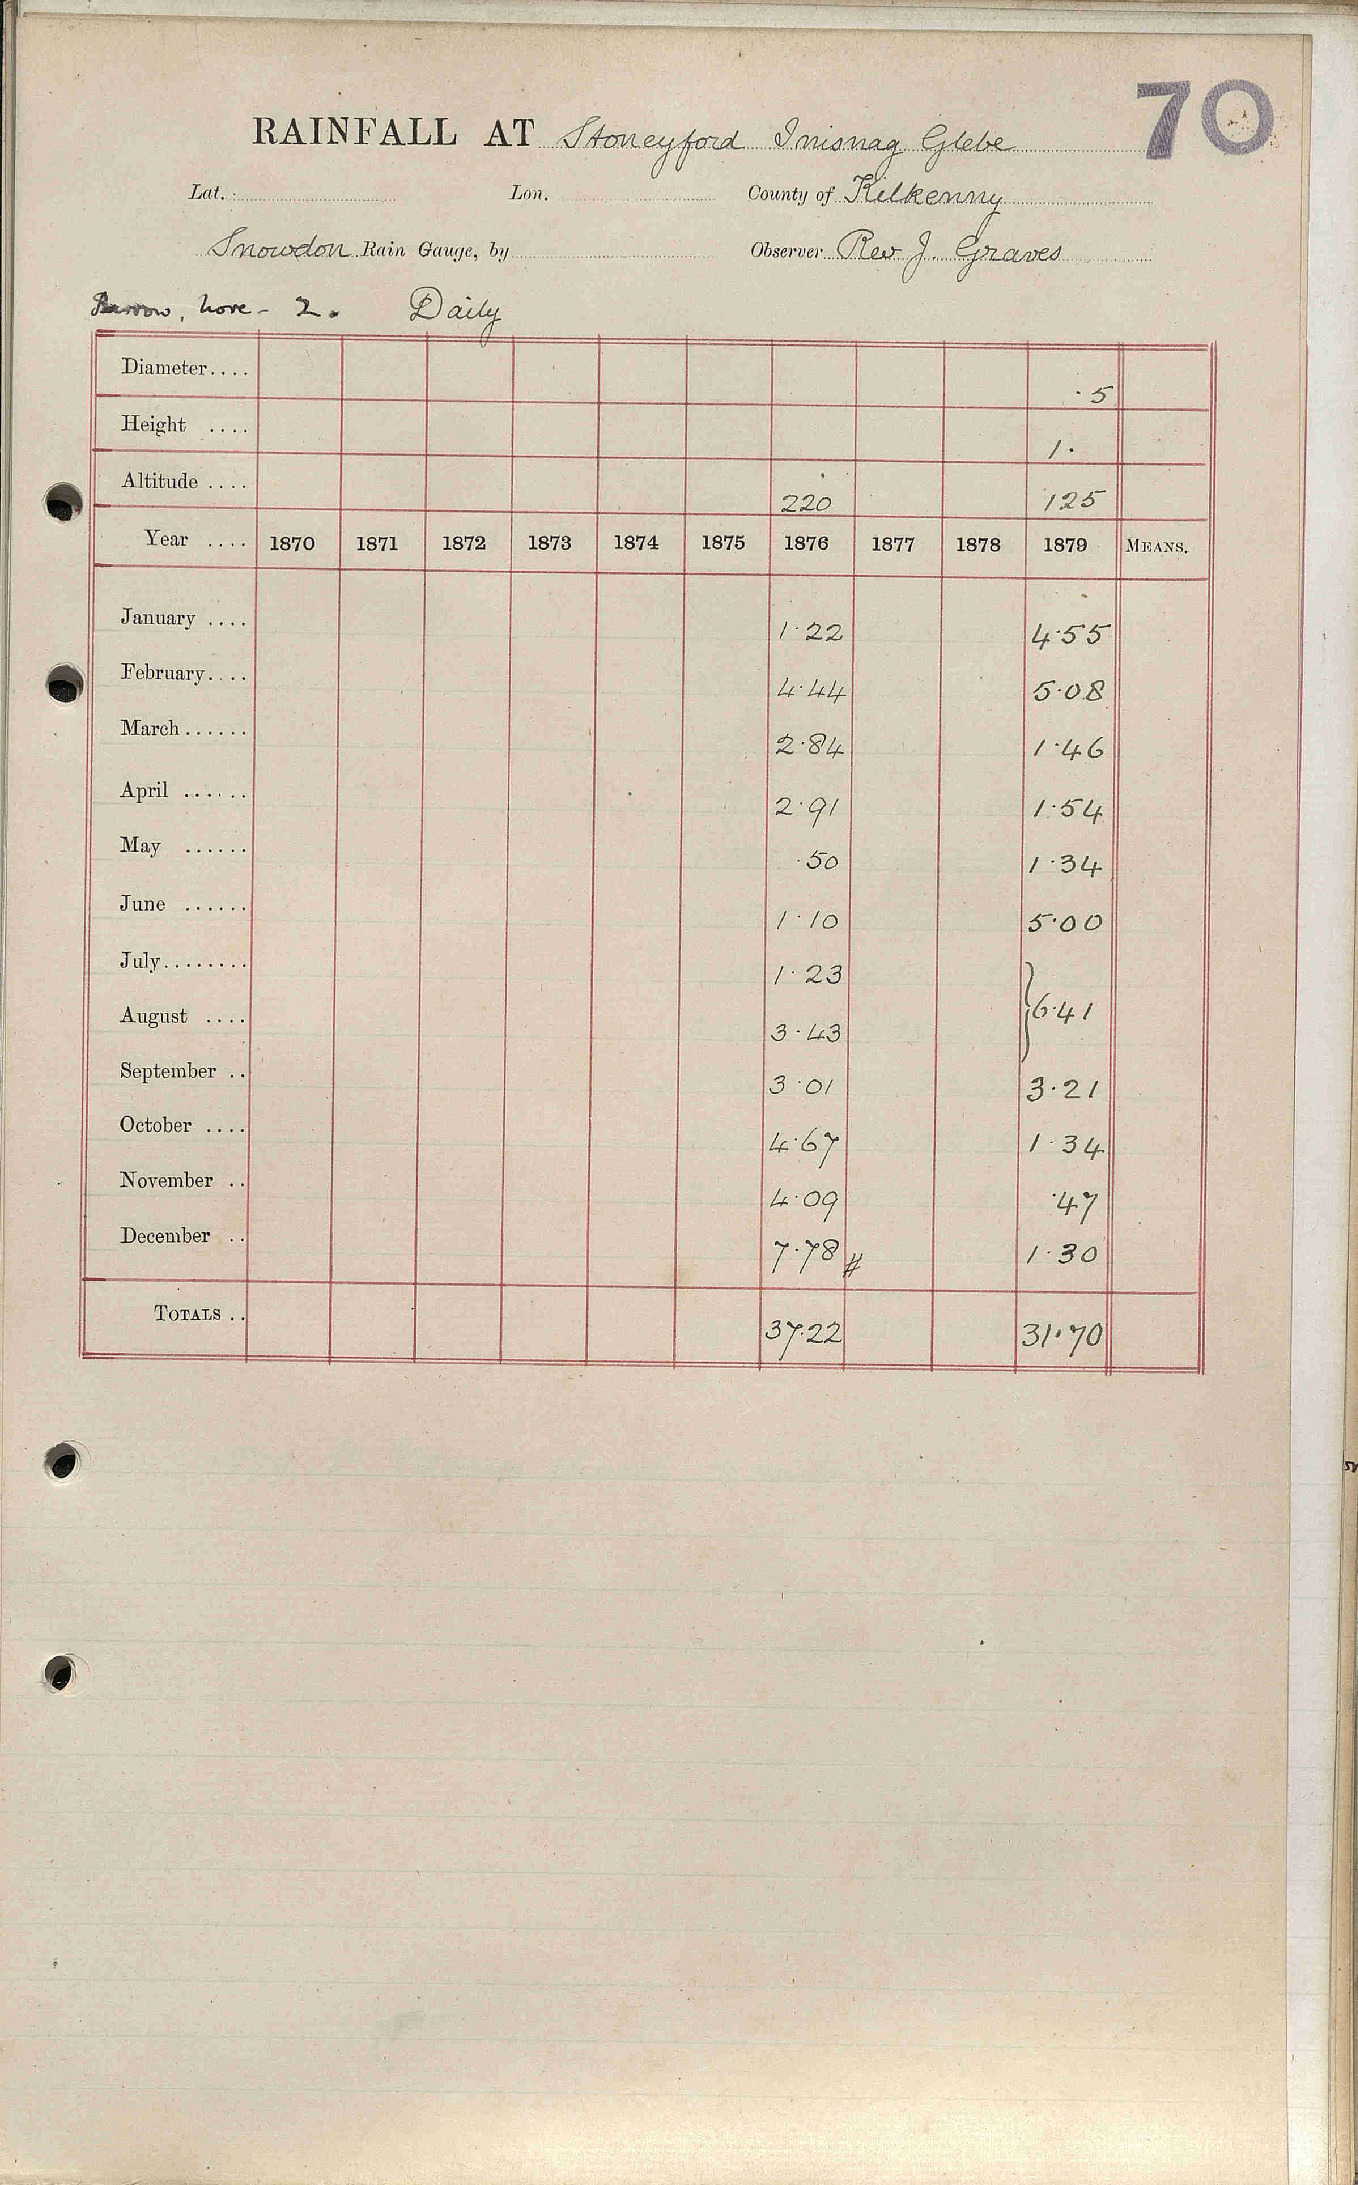 70
RAINFALL AT Stoneyford Inisnag Glebe
Lat. Lon. County of Kilkenny
Snowdon Rain Gauge, by Observer Rev J. Graves
Barrow, Nore - 2. Daily
Diameter.... ·5
Height .... 1·
Altitude .... 220 125
Year .... 1870 1871 1872 1873 1874 1875 1876 1877 1878 1879 MEANS.
January .... 1·22 4·55
February.... 4·44 5·08
March...... 2·84 1·46
April ...... 2·91 1·54
May ...... ·50 1·34
June ...... 1·10 5·00
July........ 1·23
August .... 3·43 }6·41
September .. 3·01 3·21
October .... 4·67 1·34
November .. 4·09 ·47
December .. 7·78 # 1·30
TOTALS .. 37·22 31·70